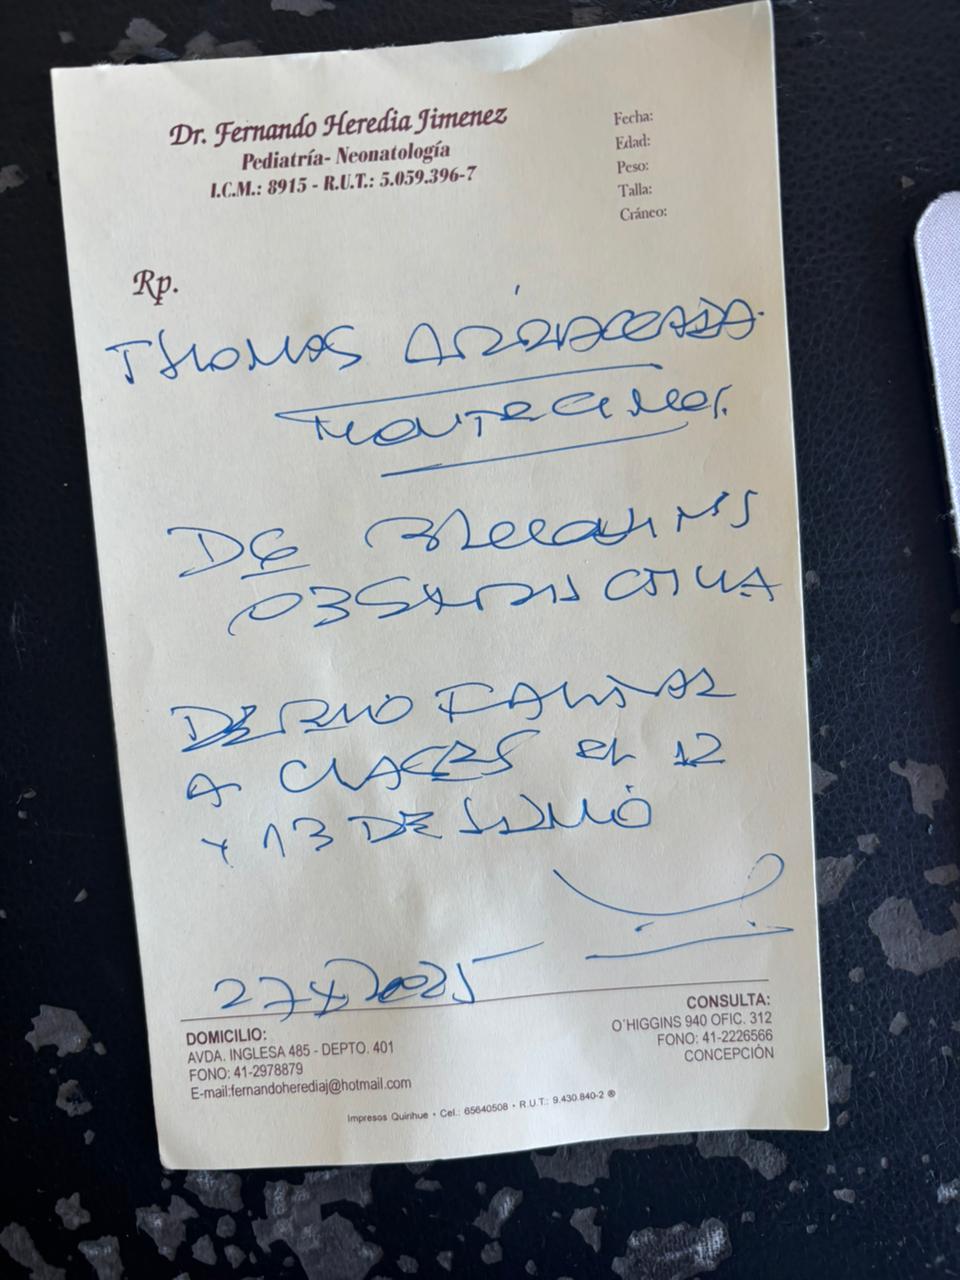 Dr. Fernando Heredia Jimenez
Pediatría- Neonatología
I.C.M.: 8915 - R.U.T.: 5.059.396-7
Fecha:
Edad:
Peso:
Talla:
Cráneo:
Rp.
THOMAS
DE
OBSTRUCTIVA
DEBIO FALTAR
A CLASES EL 12
Y 13 DE JUNIO
DOMICILIO:
AVDA. INGLESA 485 - DEPTO. 401
FONO: 41-2978879
E-mail:fernandoherediaj@hotmail.com
CONSULTA:
O´HIGGINS 940 OFIC. 312
FONO: 41-2226566
CONCEPCIÓN
Impresos Quirihue • Cel.: 65640508 • R.U.T.: 9.430.840-2 ®